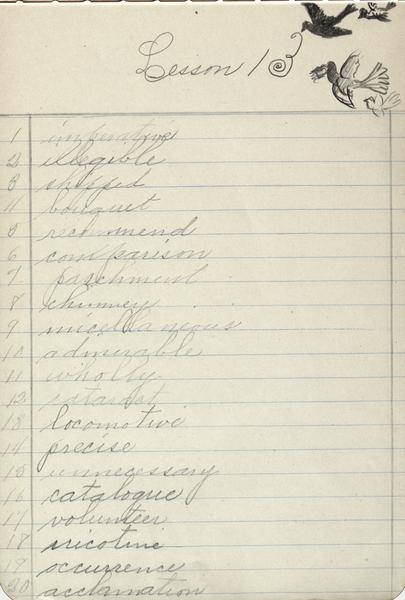 Lesson 13
1 imperative
2 illegible
3 shipped
4 bouquet
5 recommend
6 comparison
7 parchment
8 chimney
9 micellaneous
10 admirable
11 wholly
12
13 locomotive
14 precise
15 unnecessary
16 catalogue
17 volunteer
18 nicotine
19 occurrence
20 acclamation